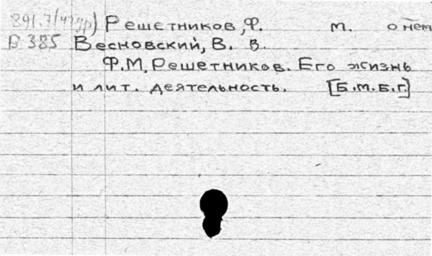 Решетников, Ф. М. о нем
В 385 Весновский, В. В.
Ф.М. Решетников. Его жизнь
и лит. деятельность. [Б.М.Б.Г.]